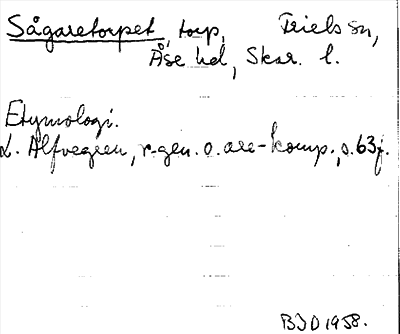 Sågaretorpet, torp, Friels sn,
Åse hd, Skar. l.
Etymologi.
L. Alfvegren, r-gen. o. are-komp., s. 63f.
BJD 1958.